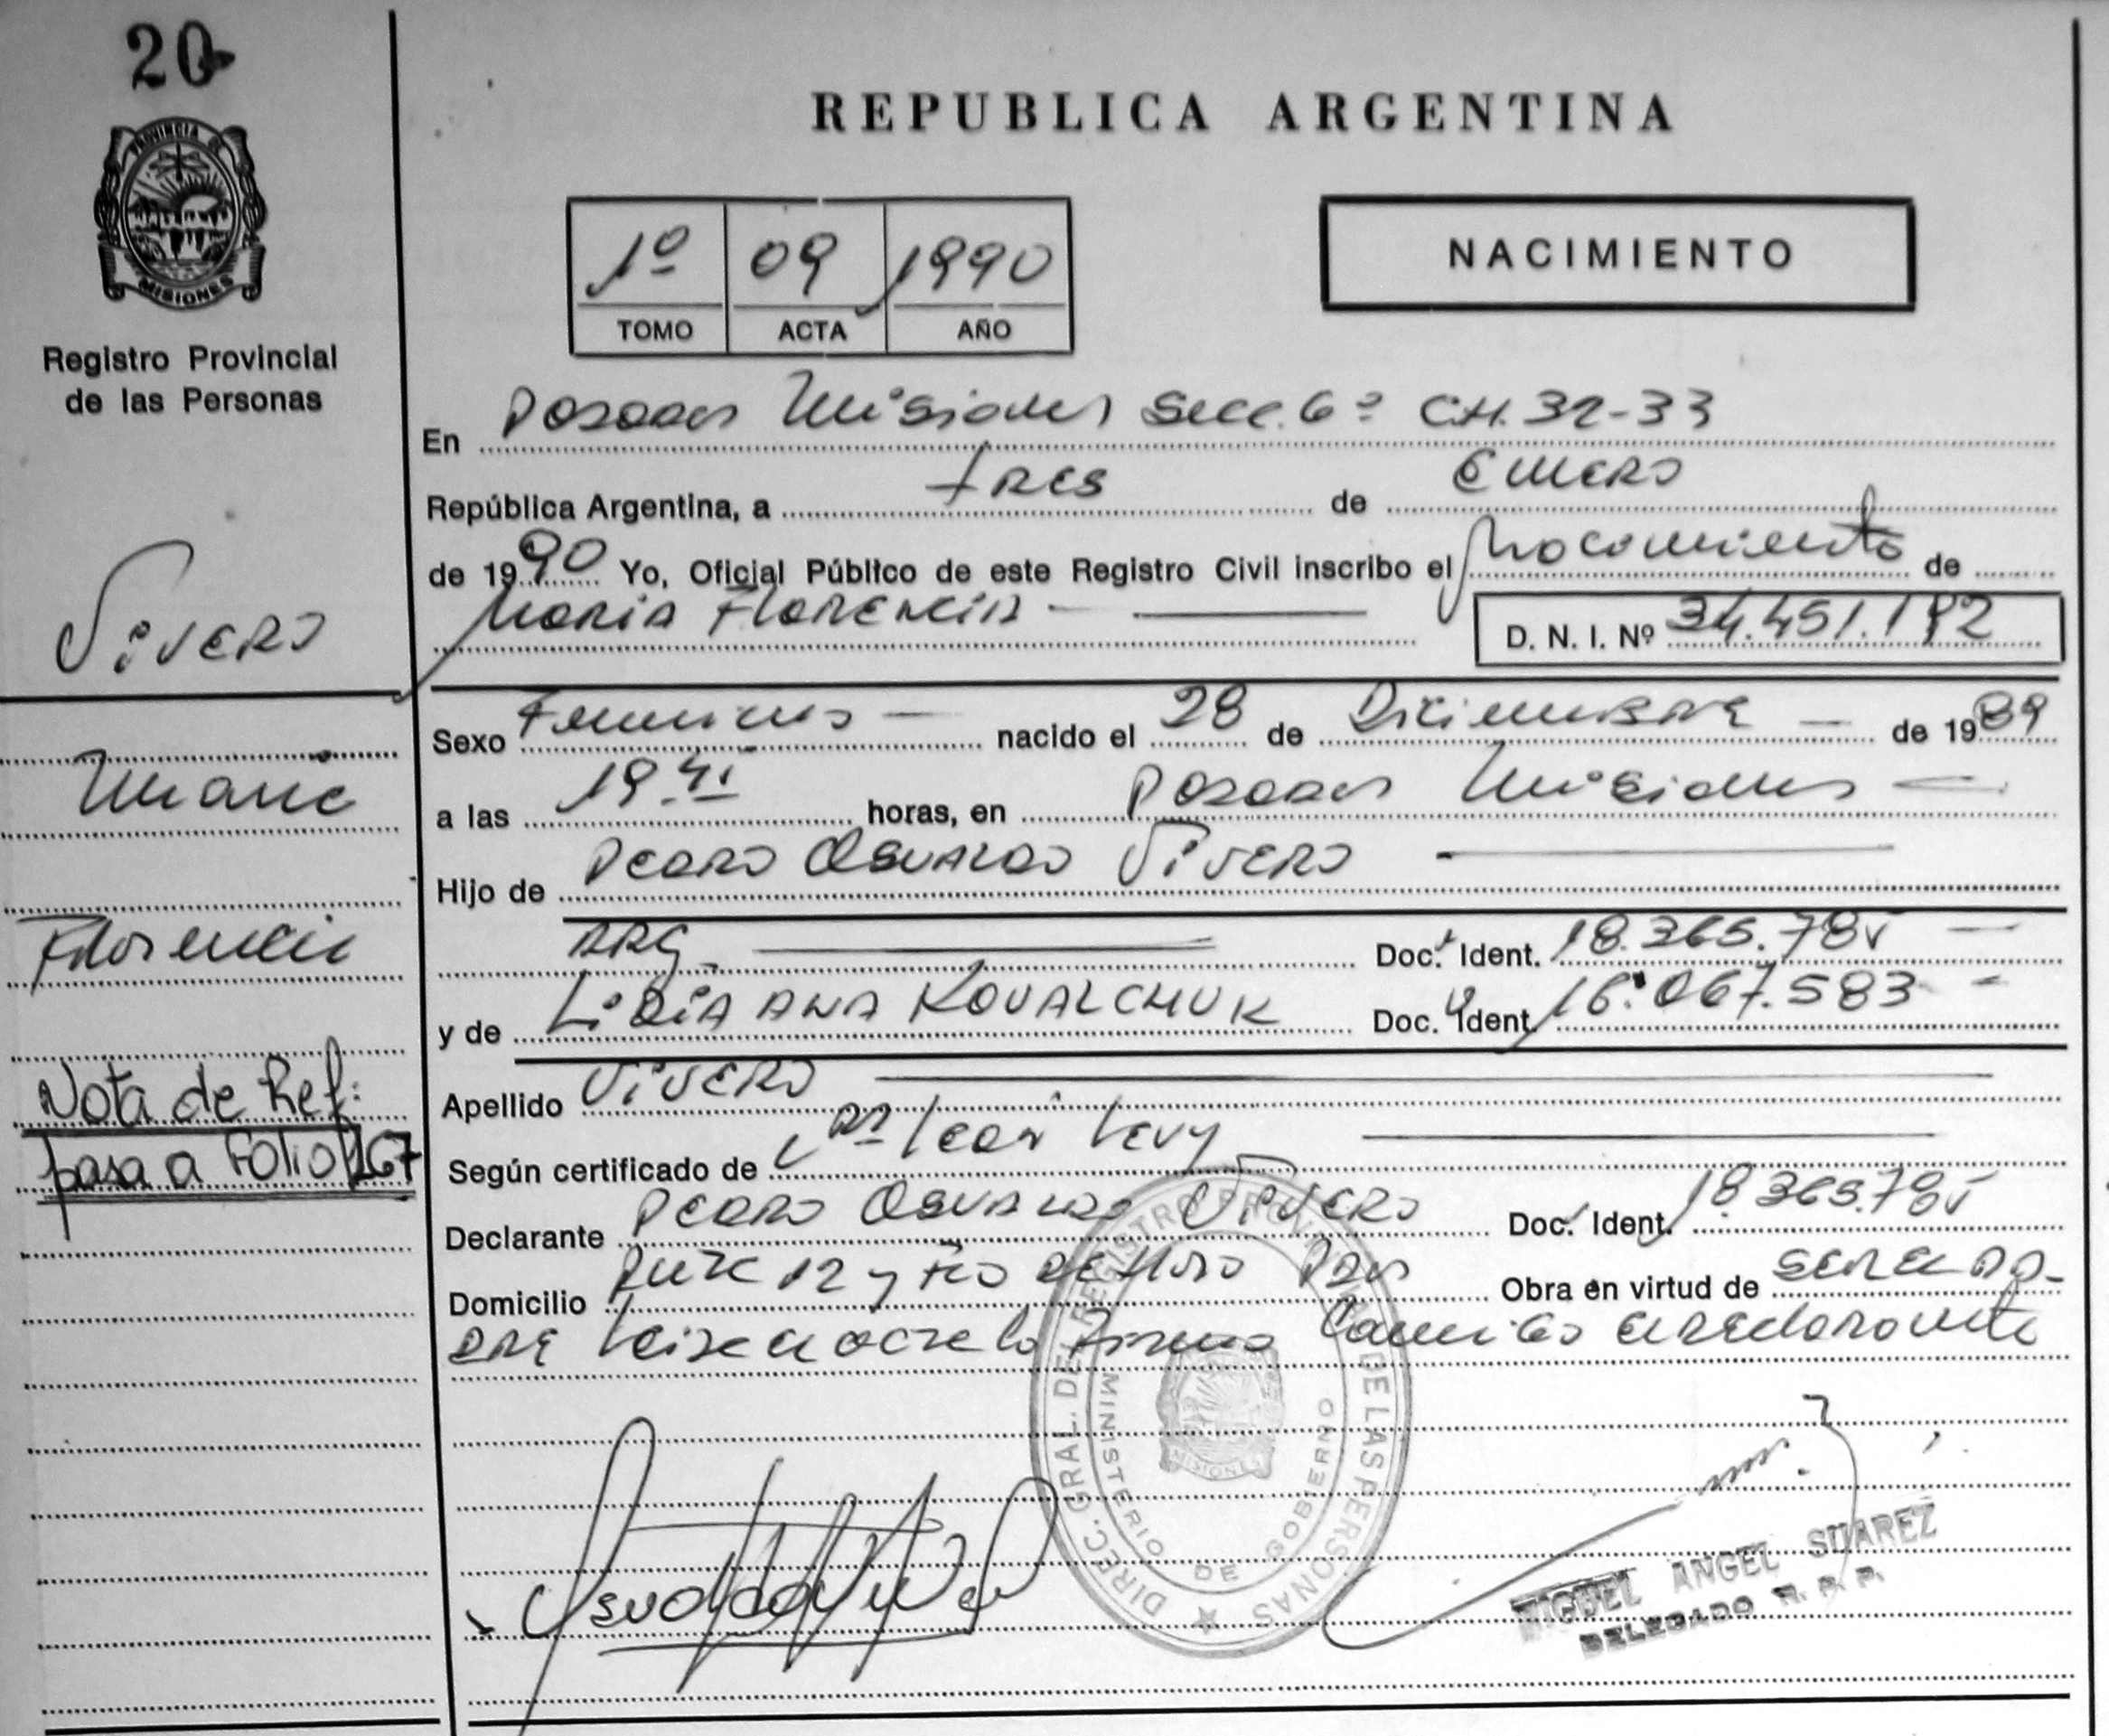 20
PROVINCIA DE
MISIONES
Registro Provincial
de las Personas
REPUBLICA ARGENTINA
1º 09 1990
TOMO ACTA AÑO
NACIMIENTO
En Posadas Misiones Secc. 6º CH. 32-33
República Argentina, a tres de Enero
de 1990 Yo, Oficial Público de este Registro Civil inscribo el Nacimiento de
Maria Florencia
D. N. I. Nº 34.451.192
Vivero
Maria
Florencia
Nota de Ref:
pasa a Folio 267
Sexo Femenino nacido el 28 de Diciembre de 1989
a las 19.45 horas, en Posadas Misiones
Hijo de Pedro Osvaldo Vivero
ARG. Doc. Ident. 18.365.785
y de Lidia Ana KOVALCHUK Doc. Ident. 16.067.583
Apellido Vivero
Según certificado de Dr Leon Levy
Declarante Pedro Osvaldo Vivero Doc. Ident. 18.365.785
Domicilio 12 y Obra en virtud de ser el pa-
dre el declarante
DIREC. GRAL. DEL REGISTRO PROVINCIAL DE LAS PERSONAS
MINISTERIO DE GOBIERNO
MISIONES
MIGUEL ANGEL SUAREZ
DELEGADO R. P. P.